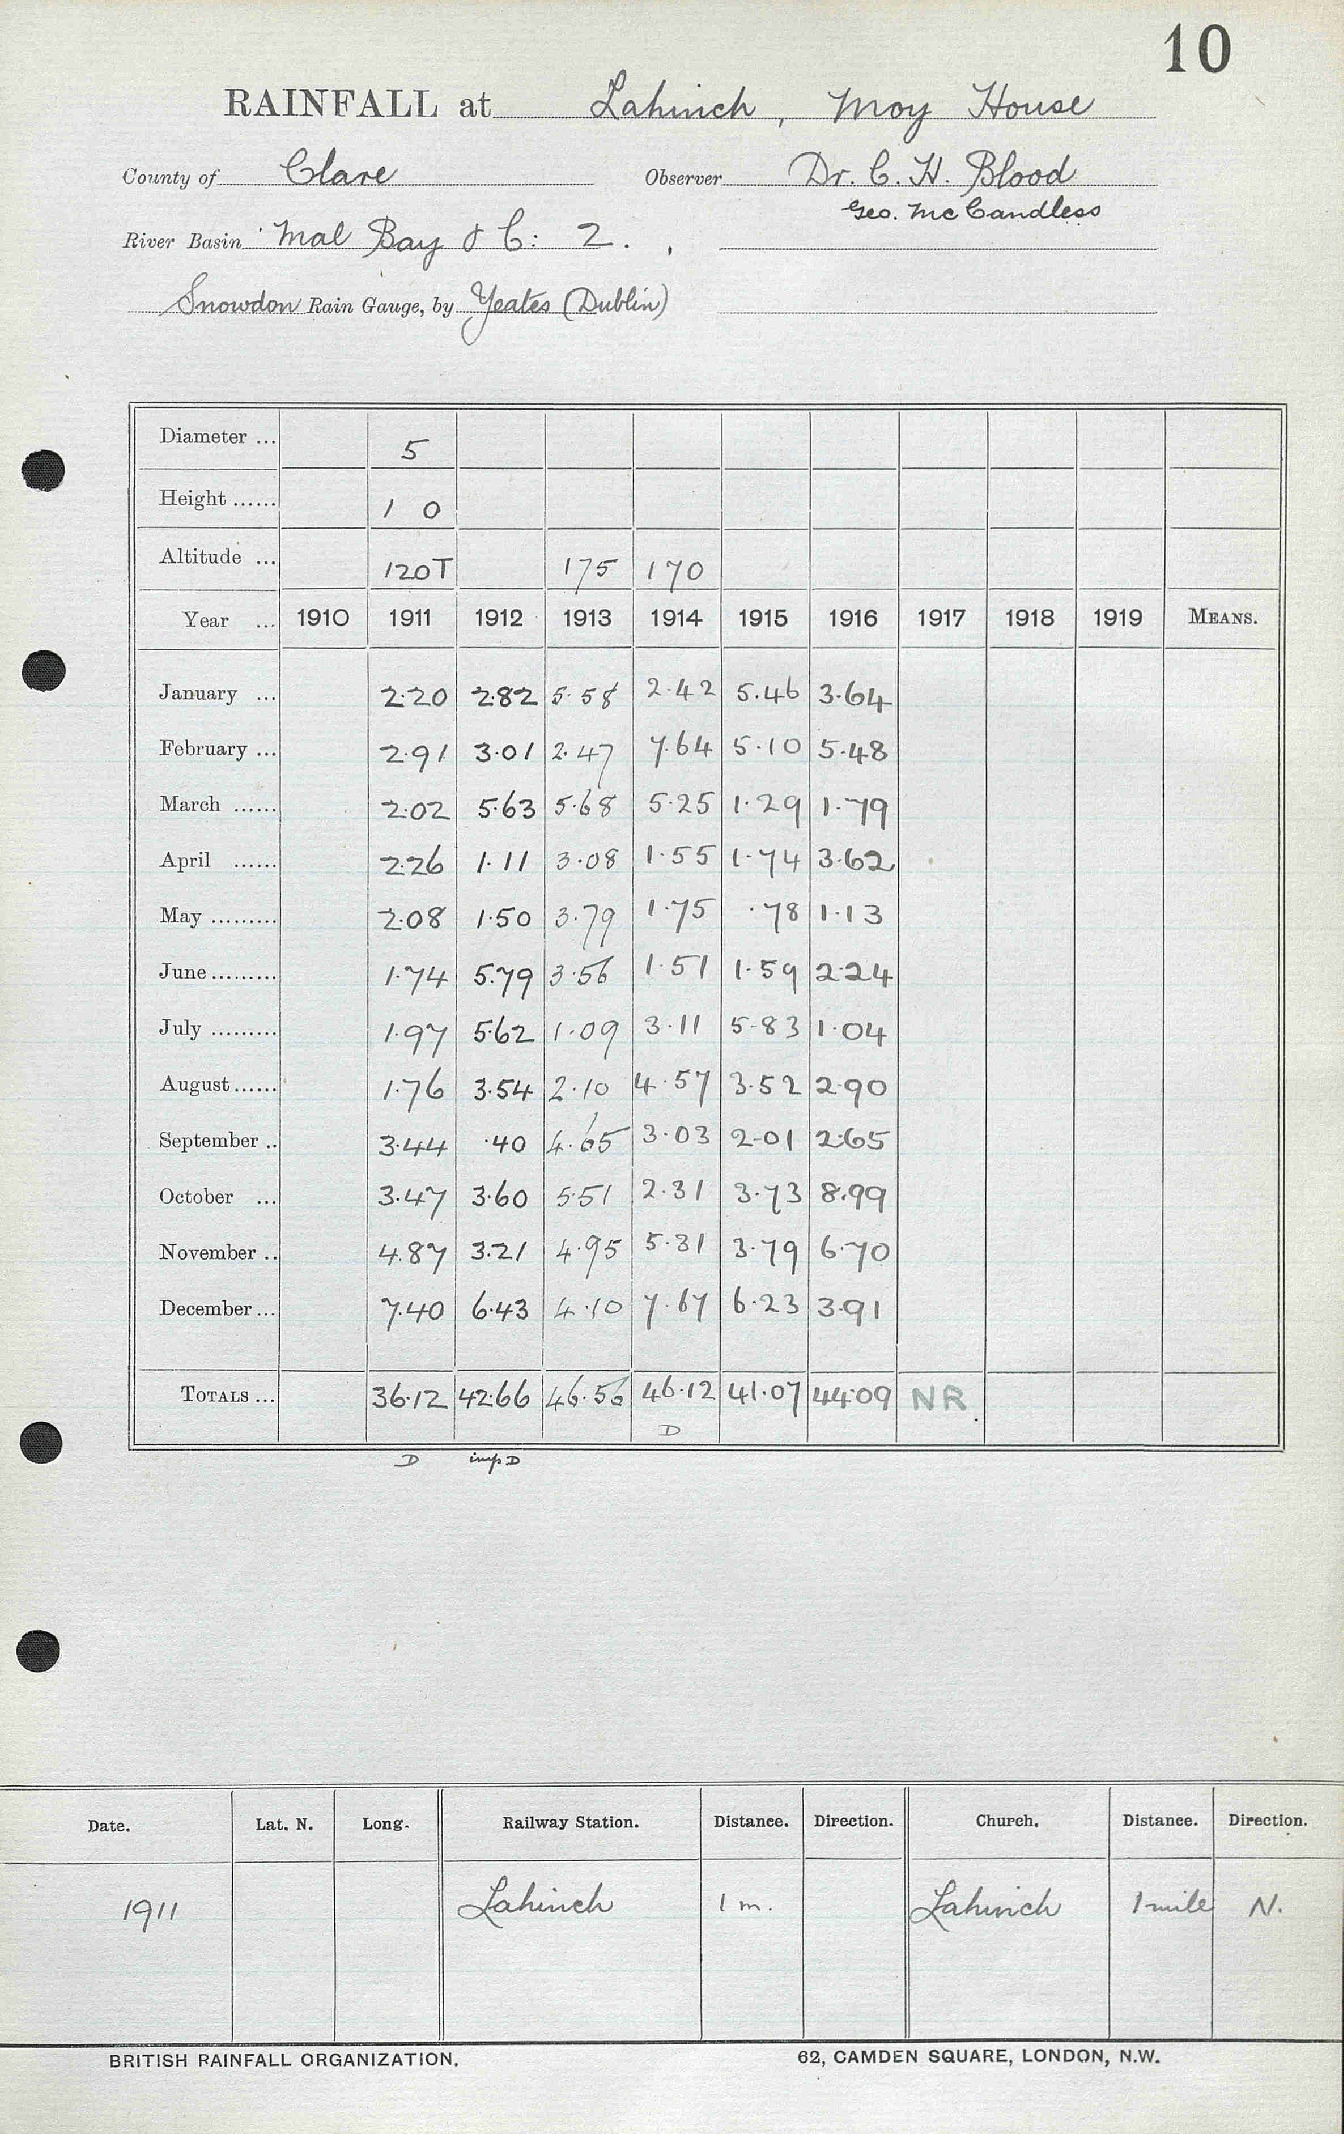 10
RAINFALL at Lahinch, Moy House
County of Clare Observer Dr. C. H. Blood
Geo. McCandless
River Basin Mal Bay & C: 2.
Snowdon Rain Gauge, by Yeates (Dublin)
Diameter ... 5
Height ...... 1 0
Altitude ... 120T 175 170
Year ... 1910 1911 1912 1913 1914 1915 1916 1917 1918 1919 MEANS.
January ... 2.20 2.82 5.58 2.42 5.46 3.64
February ... 2.91 3.01 2.47 7.64 5.10 5.48
March ...... 2.02 5.63 5.68 5.25 1.29 1.79
April ...... 2.26 1.11 3.08 1.55 1.74 3.62
May ......... 2.08 1.50 3.79 1.75 .78 1.13
June ......... 1.74 5.79 3.56 1.51 1.59 2.24
July ......... 1.97 5.62 1.09 3.11 5.83 1.04
August ...... 1.76 3.54 2.10 4.57 3.52 2.90
September .. 3.44 .40 4.65 3.03 2.01 2.65
October ... 3.47 3.60 5.51 2.31 3.73 8.99
November .. 4.87 3.21 4.95 5.31 3.79 6.70
December ... 7.40 6.43 4.10 7.67 6.23 3.91
TOTALS ... 36.12 42.66 46.56 46.12 41.07 44.09 NR
D
D imp D
Date. Lat. N. Long. Railway Station. Distance. Direction. Church. Distance. Direction.
1911 Lahinch 1 m. Lahinch 1 mile N.
BRITISH RAINFALL ORGANIZATION. 62, CAMDEN SQUARE, LONDON, N.W.